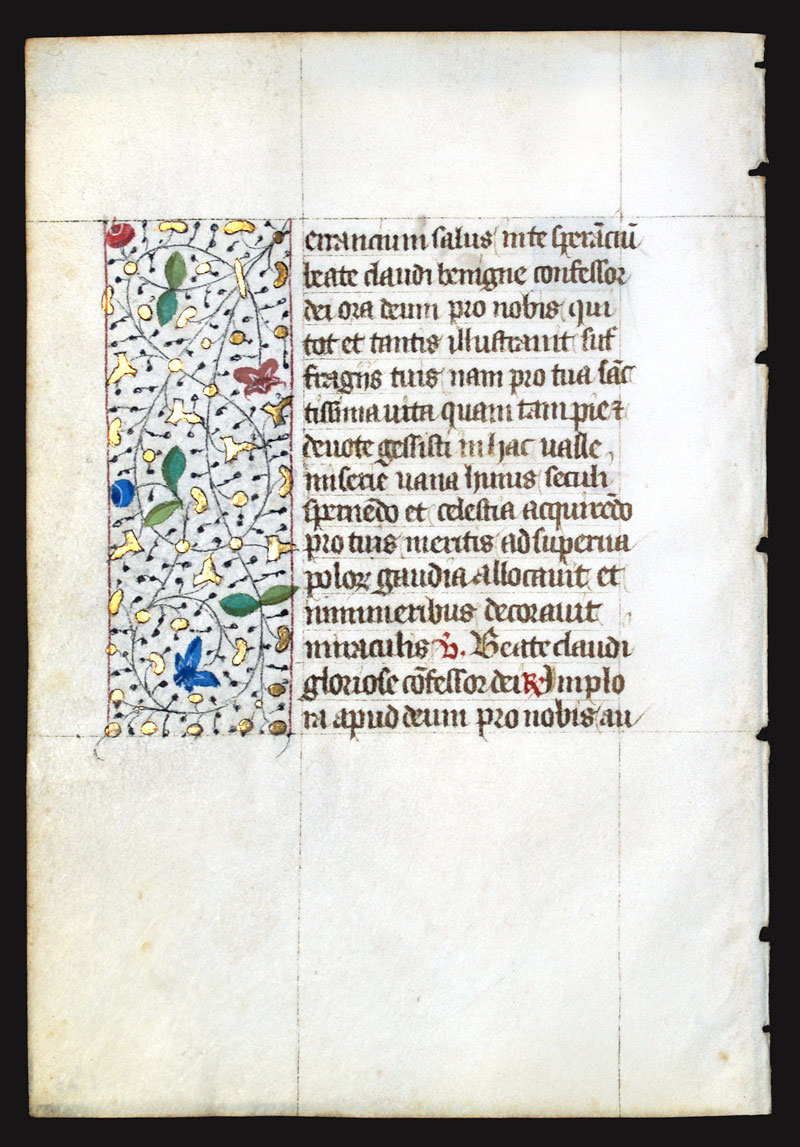 errancium salus in te sperāciū
beate claudi benigne confessor
dei ora deum pro nobis qui
tot et tantis illustrauit suf
fragiis tuis nam pro tua sāc
tissima uita quam tam pie ⁊
deuote gessisti in hac ualle
miserie uana huius seculi
spernēdo et celestia acquirēdo
pro tuis meritis ad superua
poloꝝ gaudia allocauit et
innumeribus decorauit
miraculis ℣. Beate claudi
gloriose cōfessor dei ℟ Implo
ra apud deum pro nobis au